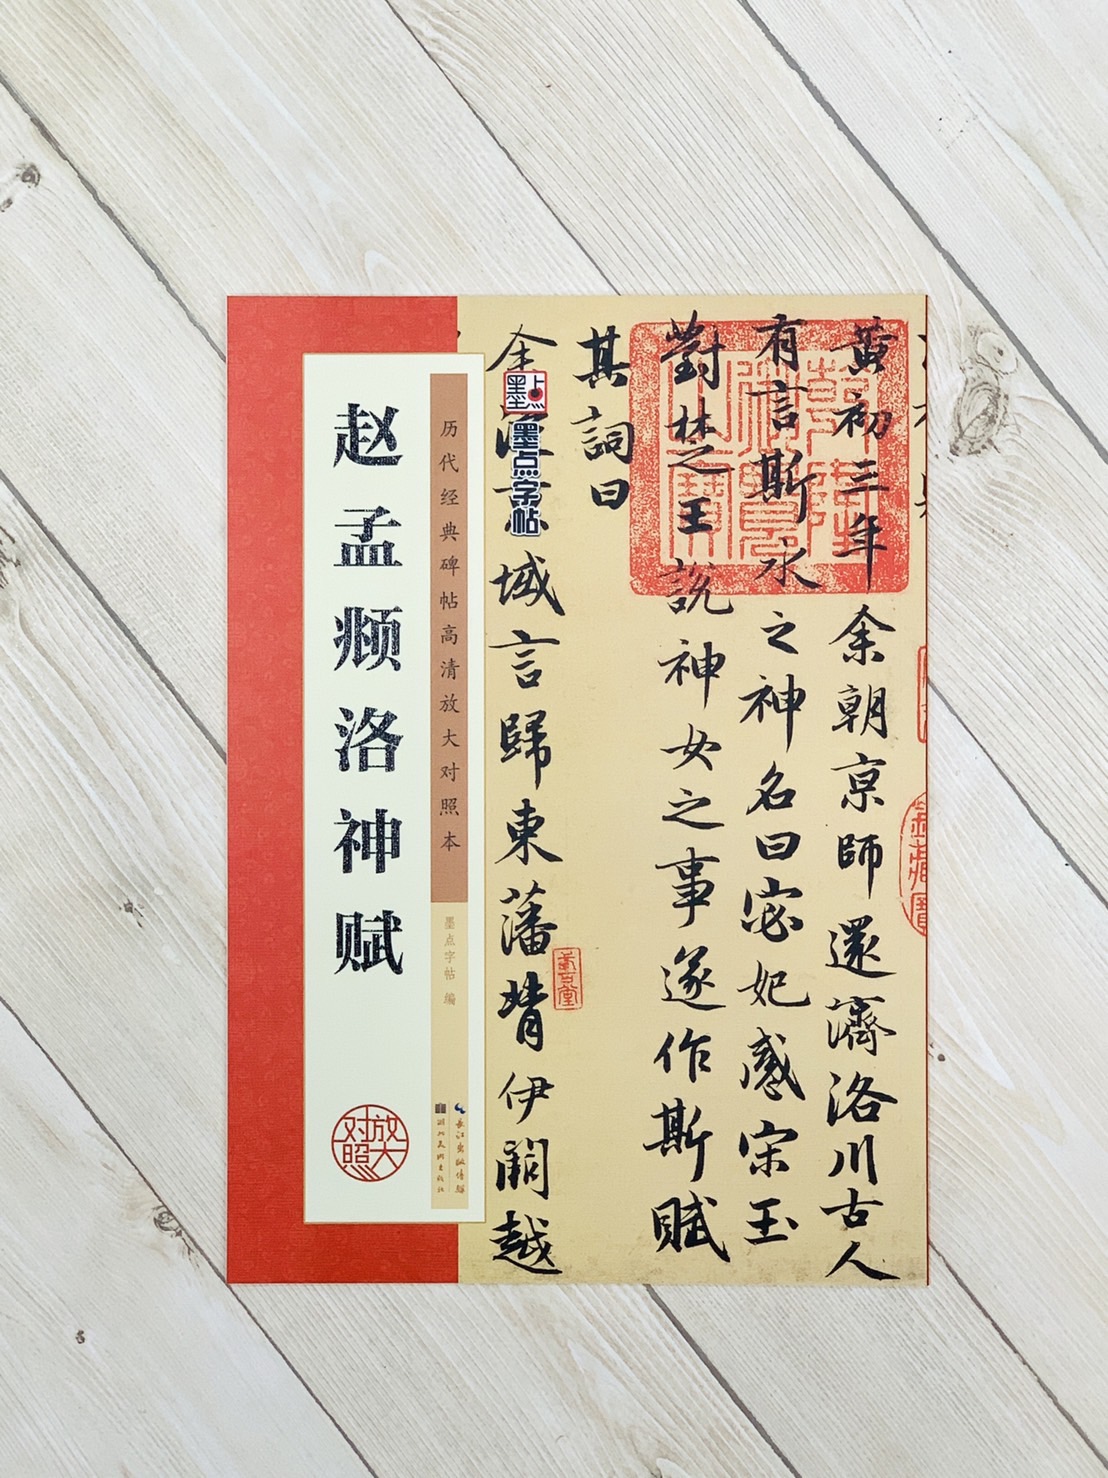 赵孟𫖯洛神赋
历代经典碑帖高清放大对照本
墨点字帖 编
放大对照
长江出版传媒
湖北美术出版社
墨点
墨点字帖
黄初三年余朝京師還濟洛川古人
有言斯水之神名曰宓妃感宋玉
對楚王說神女之事遂作斯賦
其詞曰
余域言歸東藩背伊闕越